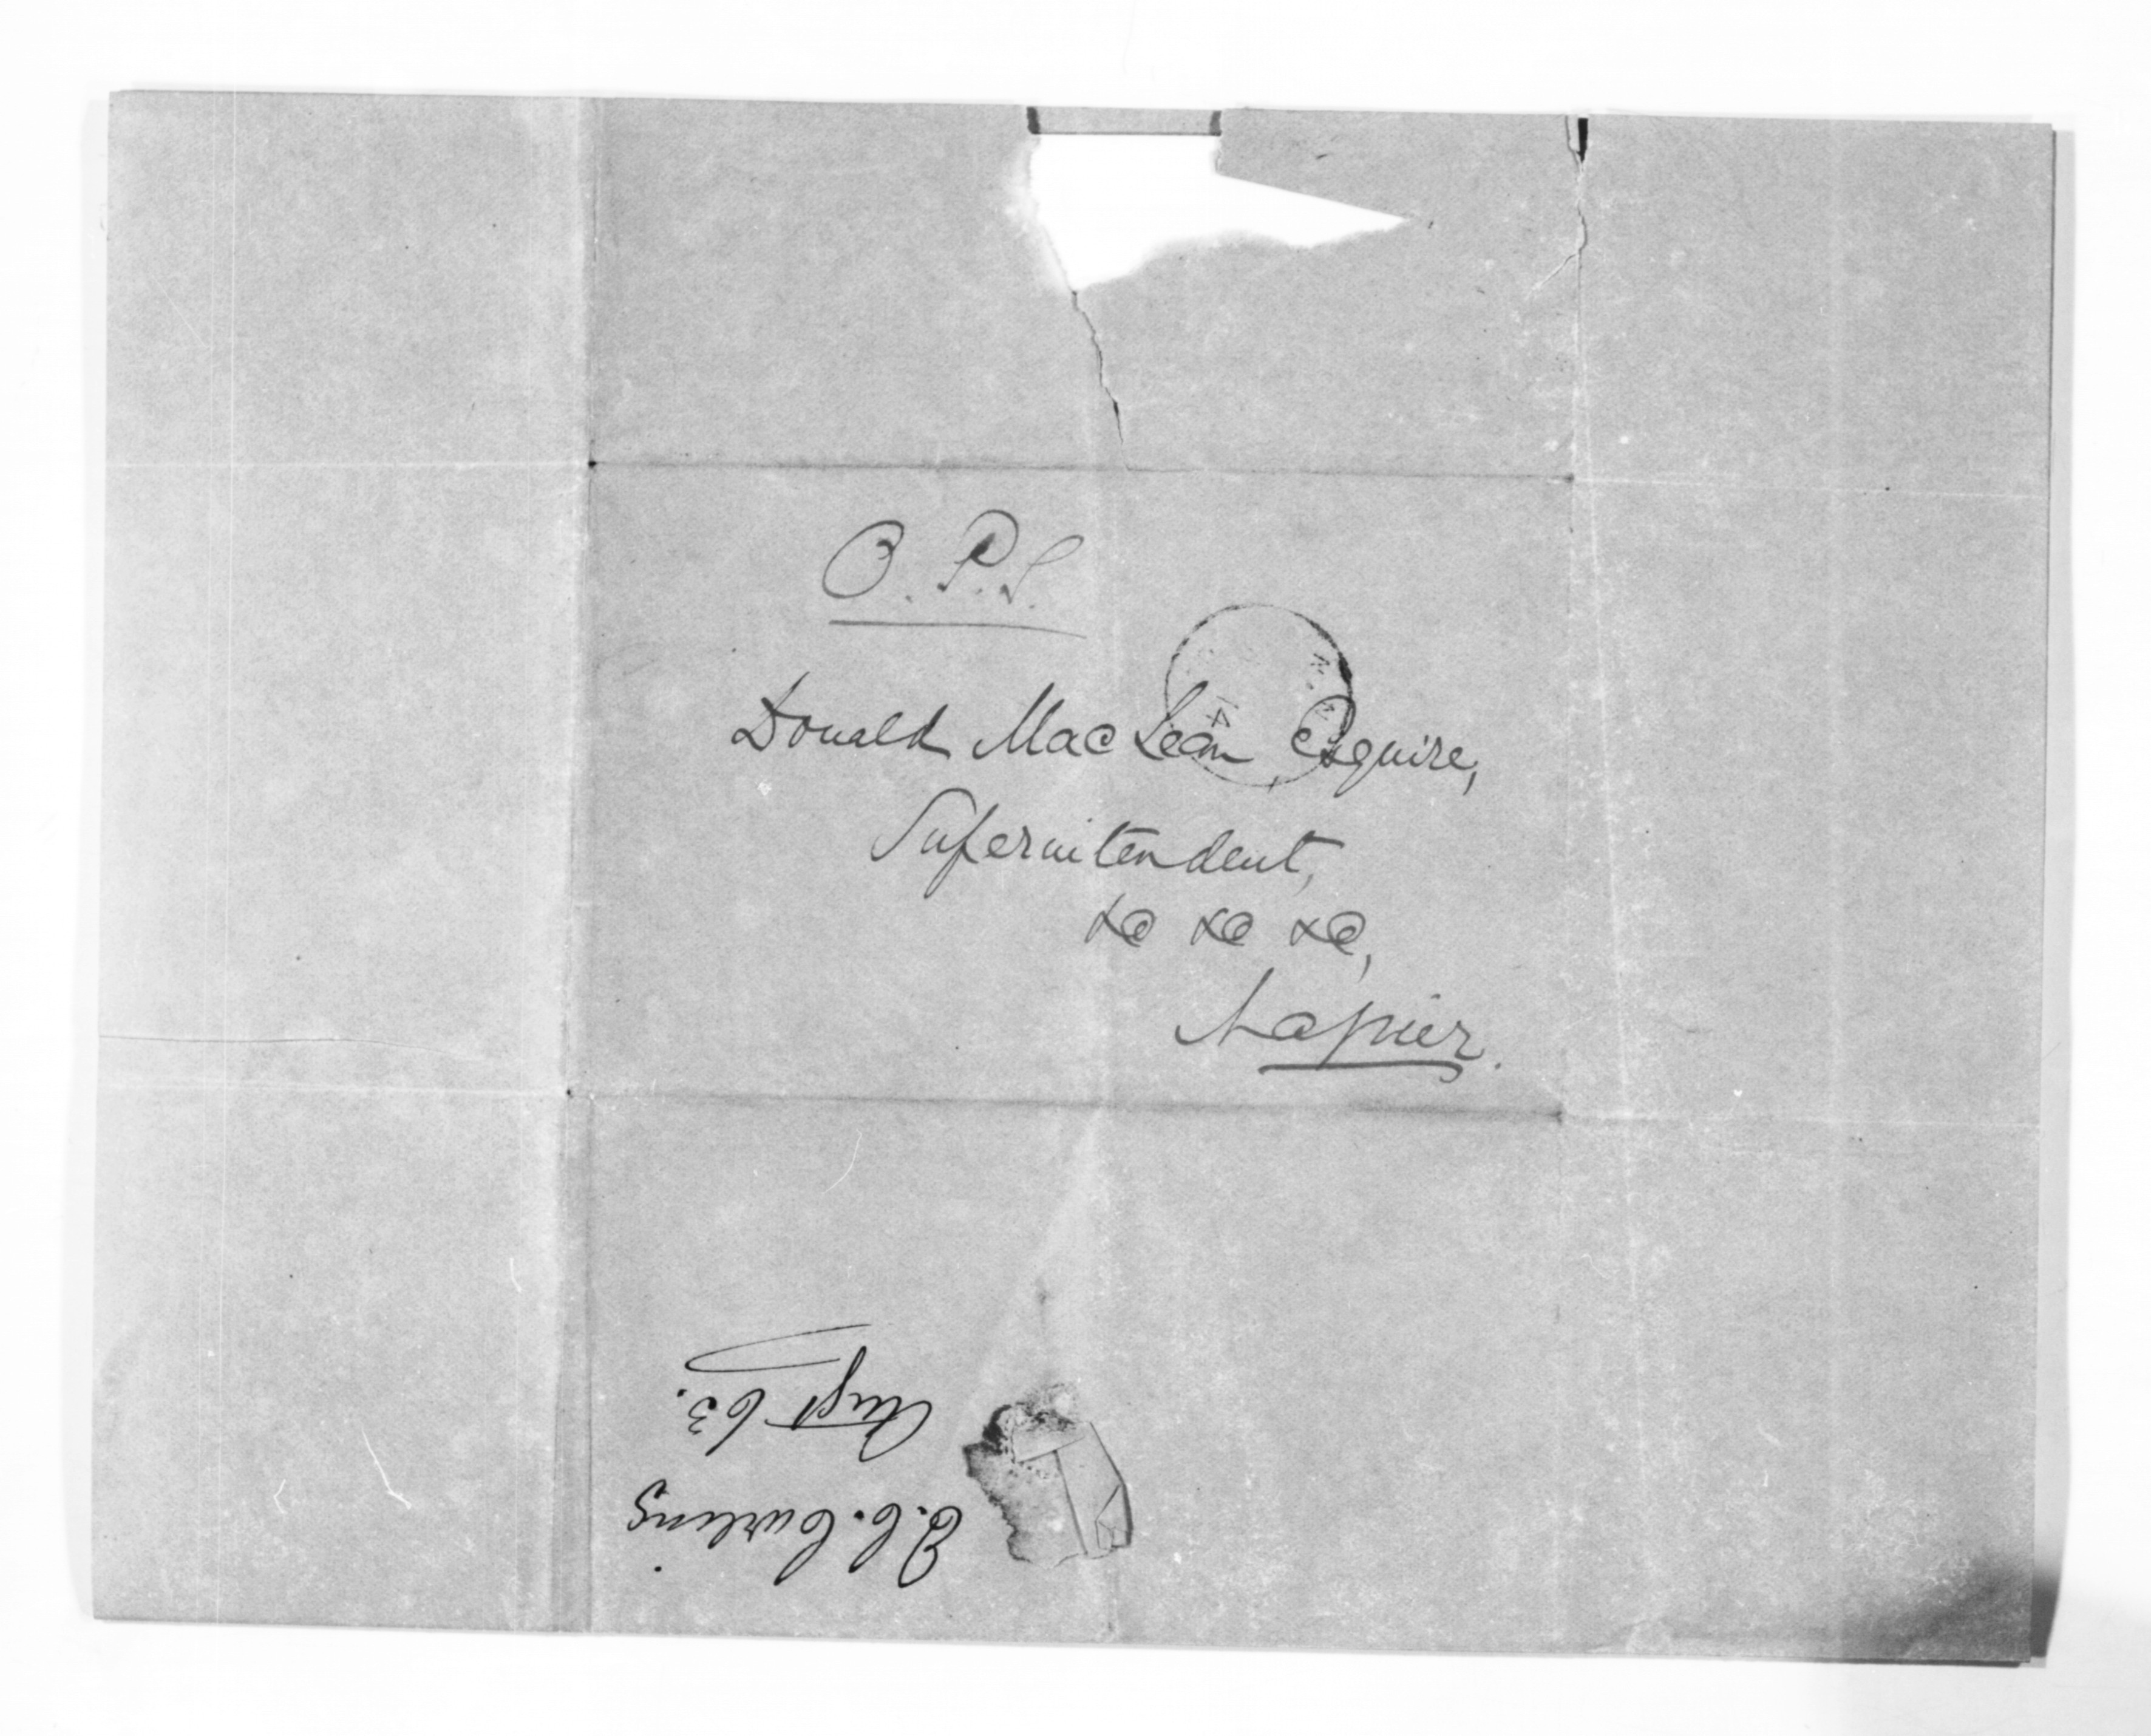 O.P.S.
Donald MacLean, Esquire,
Superintendent,
&c &c &c,
Napier.
Augt 63.